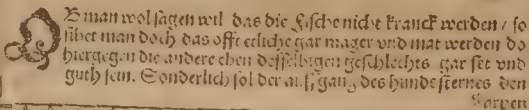 OB man wol sagen wil das die Fische nicht kranck werden / so
sihet man doch das offt etliche gar mager vnd mat werden do
hiergegen die andere eben desselbigen geschlechts gar fet vnd
guth sein. Sonderlich sol der auffgang des hundesternes den
Karpen